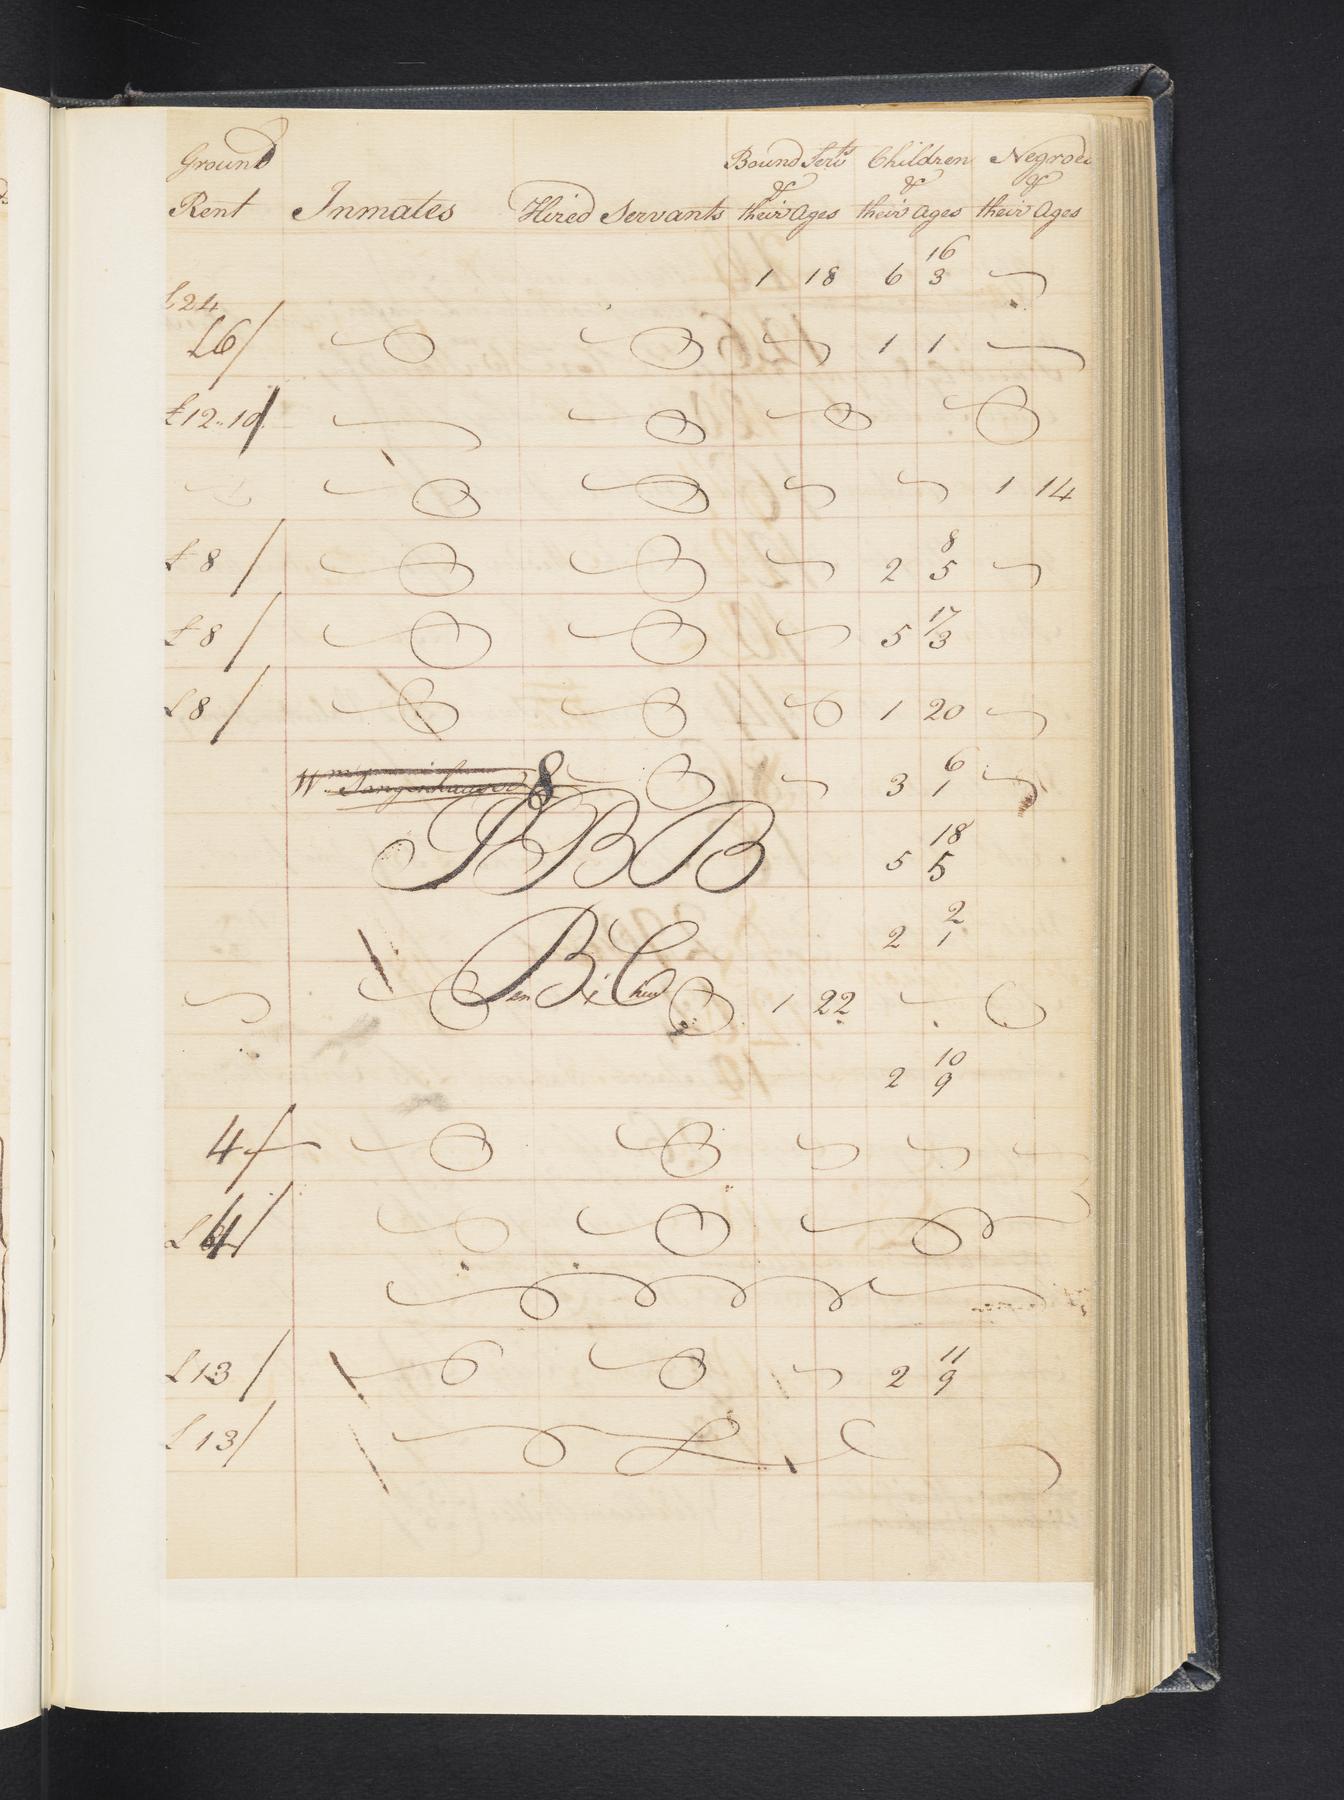 Ground Bound Servts Children Negroes
& & &
Rent Inmates Hired Servants their Ages their Ages their Ages
16
1 18 6 3
£24
£6/ 1 1
£12..10/
1 14
8
£8 / 2 5
17
£8 / 5 3
£8 / 1 20
6
Wm 8 3 1
18
BB 5 5
2
2 1
B C
1 22
10
2 9
4/
£
11
£13 / 2 9
£13/